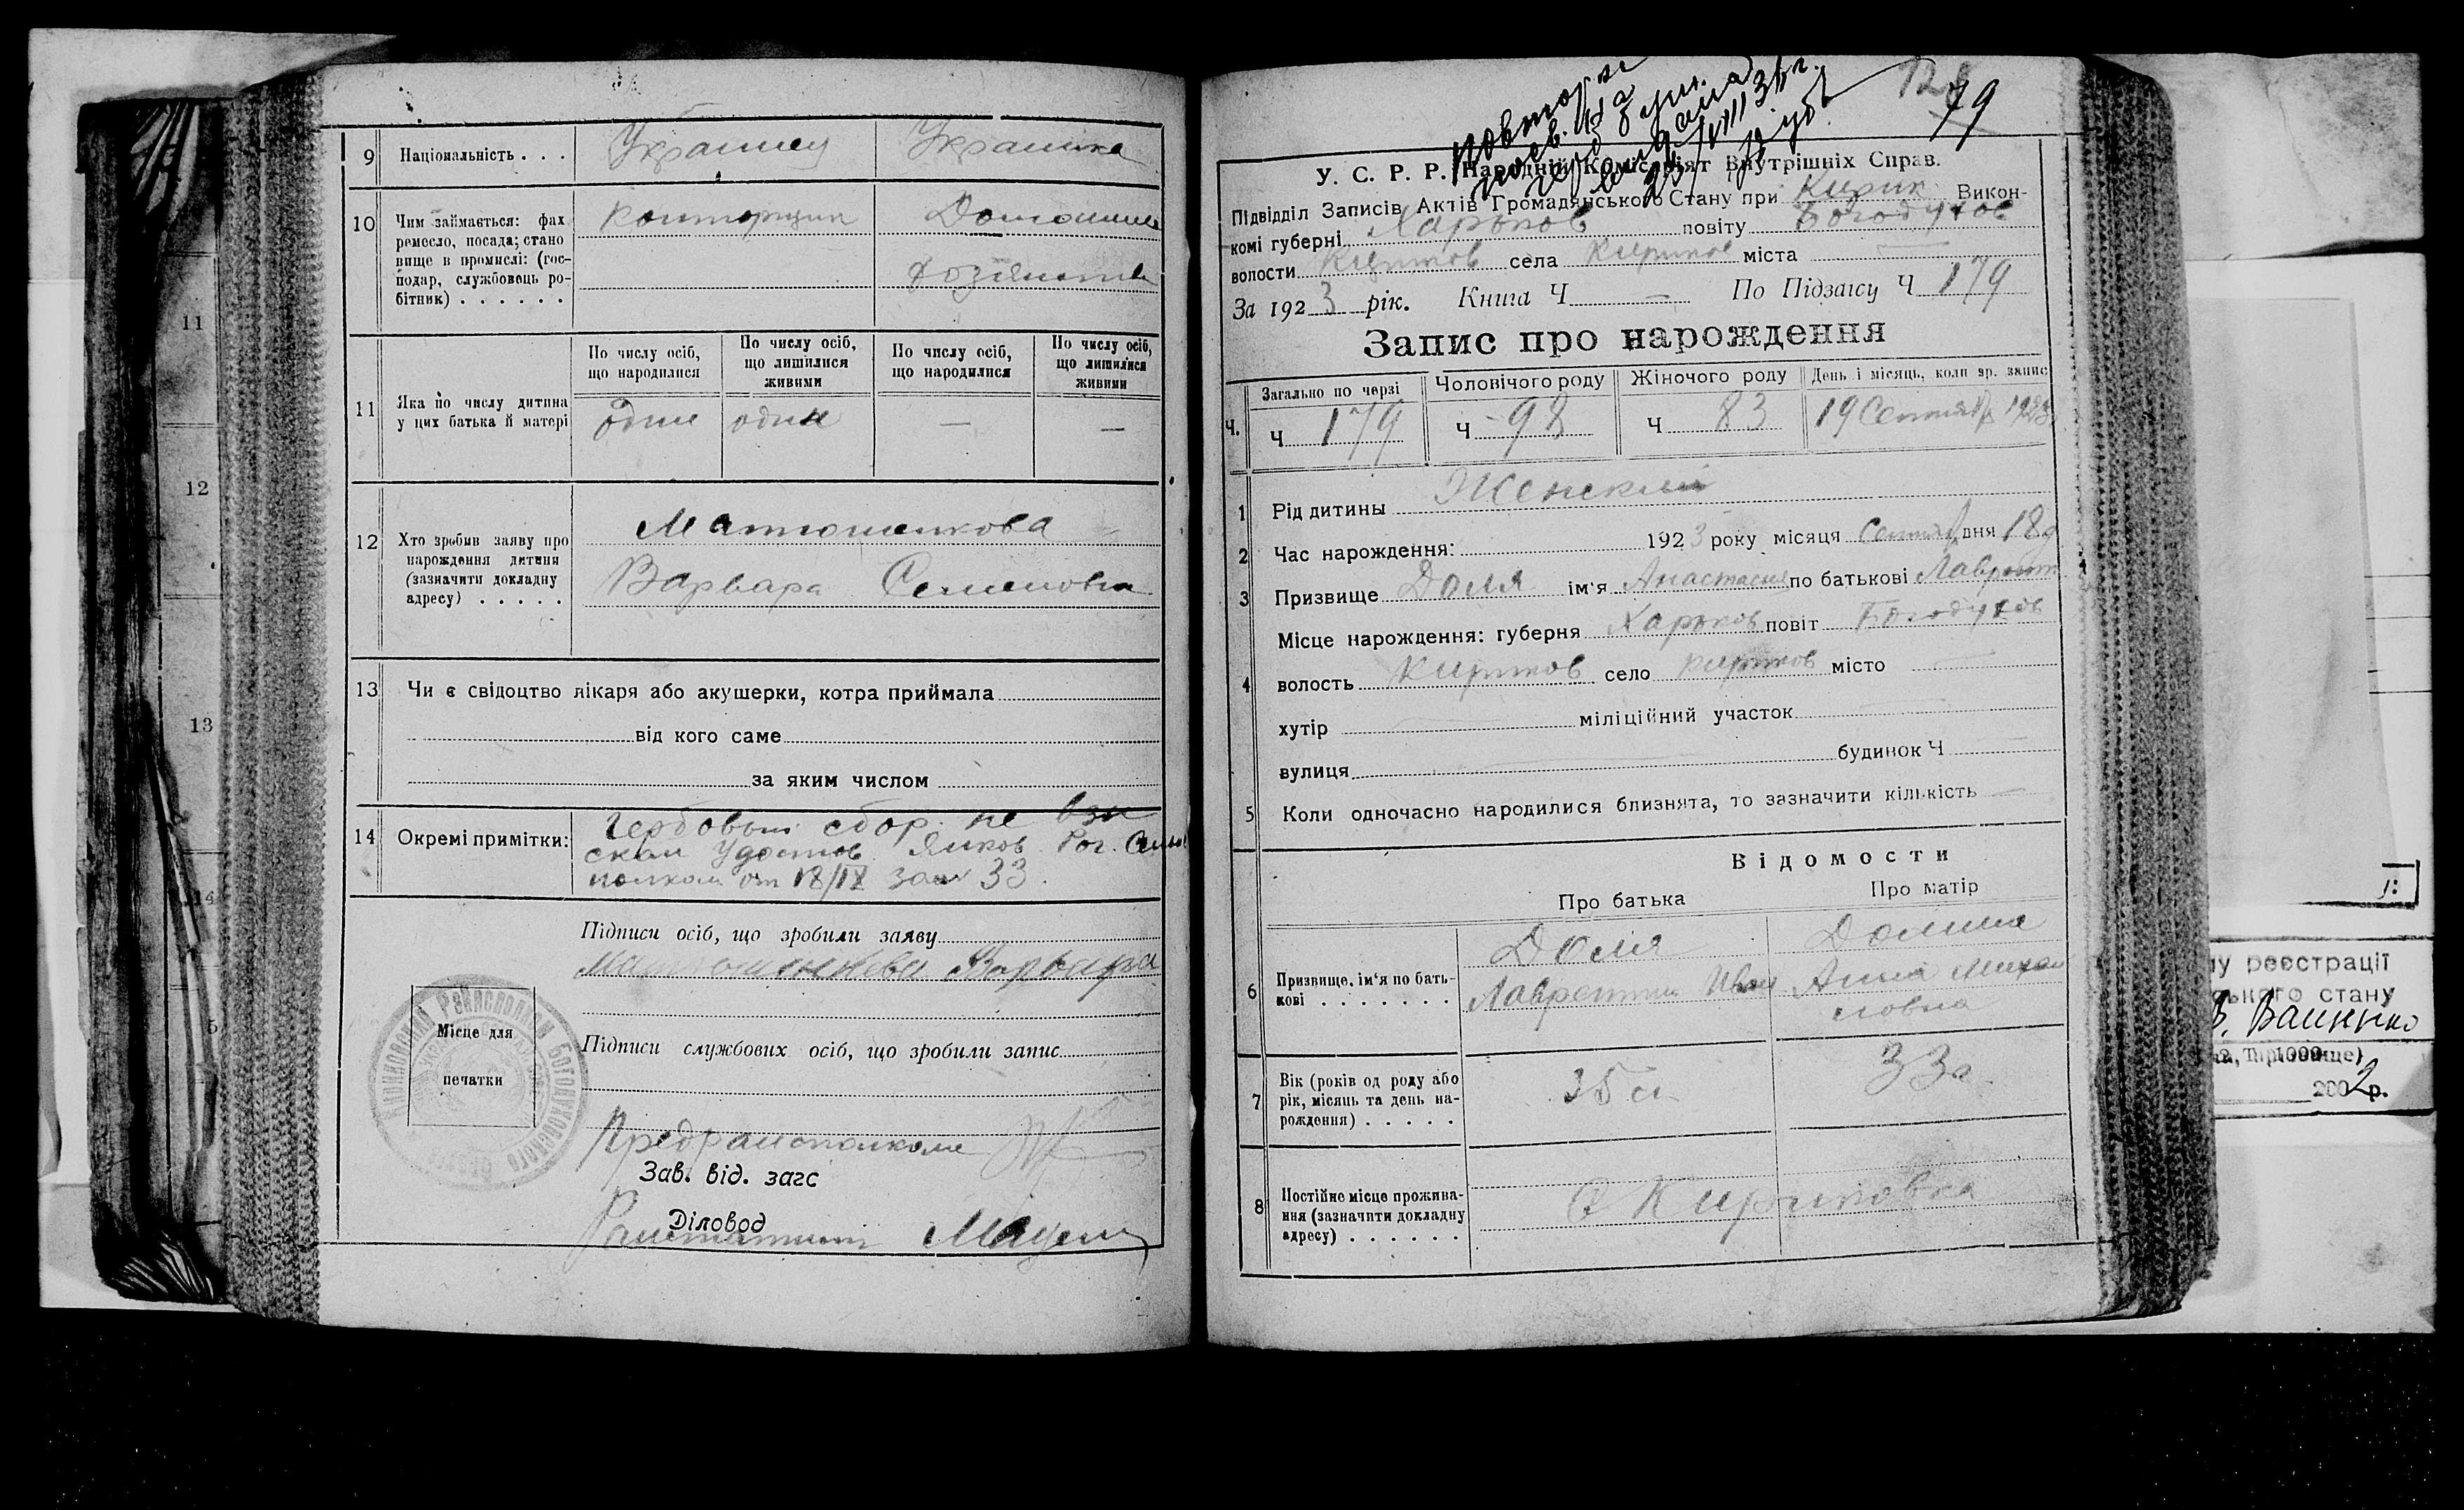 9 Національність . . . Украинец Украинка
10 Чим займається: фах Конторщик Домашнее
ремесло, посада; стано
вище в промислі: (гос- хозяйство
подар, службовець ро-
бітник) . . . . . .
По числу осіб, що народилися По числу осіб, що лишилися живими По числу осіб, що народилися По числу осіб, що лишилися живими
11 Яка по числу дитина
у цих батька й матері один один — —
12 Хто зробив заяву про Матюшенкова
нарождення дитини
(зазначити докладну Варвара Семеновна
адресу) . . . . .
13 Чи є свідоцтво лікаря або акушерки, котра приймала
від кого саме
за яким числом
14 Окремі примітки: Гербовый сбор не взи
скан Удостов. Рог. Сель
полкома от 18/IX за № 33.
Підписи осіб, що зробили заяву
Матюшенкова Варвара
Місце для
печатки
Підписи службових осіб, що зробили запис
Предрайисполкома
Зав. від. загс
Діловод
79
У. С. Р. Р. Народній Комісаріят Внутрішніх Справ.
Підвідділ Записів Актів Громадянського Стану при Кирик Викон-
комі губерні Харьков повіту Богодухов
волости Кириков села Кириков міста —
За 1923 рік. Книга Ч — По Підзагсу Ч 179
Запис про нарождення
Ч. Загально по черзі Чоловічого роду Жіночого роду День і місяць, коли зр. запис
Ч 179 Ч 98 Ч 83 19 Сентяб 1923
1 Рід дитины Женский
2 Час нарождення: 1923 року місяця Сентяб дня 18
3 Призвище Доля ім'я Анастасия по батькові Лаврент
4 Місце нарождення: губерня Харьков повіт Богодухов
волость Кириков село Кириков місто —
хутір — міліційний участок —
вулиця — будинок Ч —
5 Коли одночасно народилися близнята, то зазначити кількість —
Відомости
Про батька Про матір
6 Призвище, ім'я по бать-
кові . . . . . . .
Доля
Лаврентий Иван
Долина
Анна Михай
ловна
7 Вік (років од роду або
рік, місяць та день на-
рождення) . . . . . 35 л 33
8 Постійне місце прожива-
ння (зазначити докладну
адресу) . . . . . .
С Кириковка
11
12
13
14
реєстрації
стану
2002р.